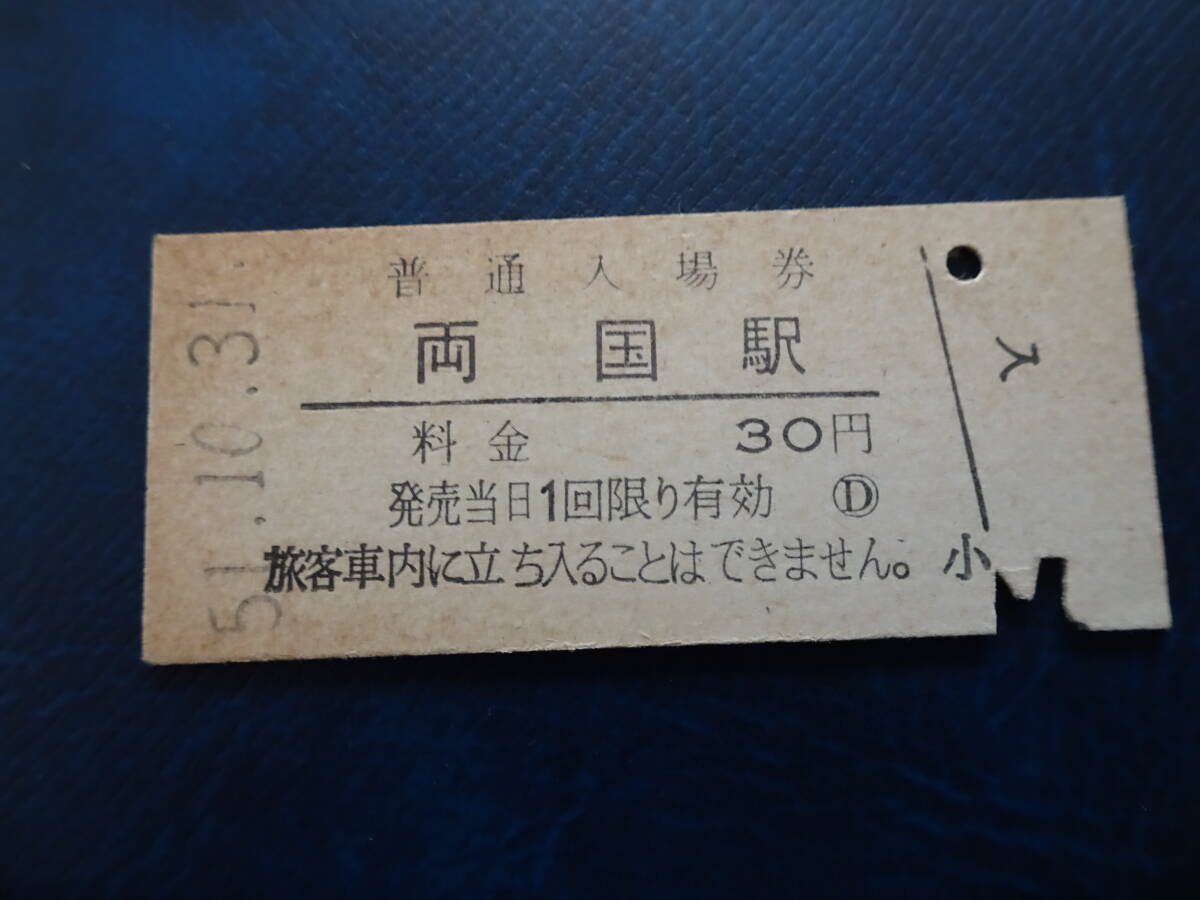 普通入場券
両国駅
料金 30円
発売当日1回限り有効 Ⓓ
旅客車内に立ち入ることはできません。
小
入
51.10.31.